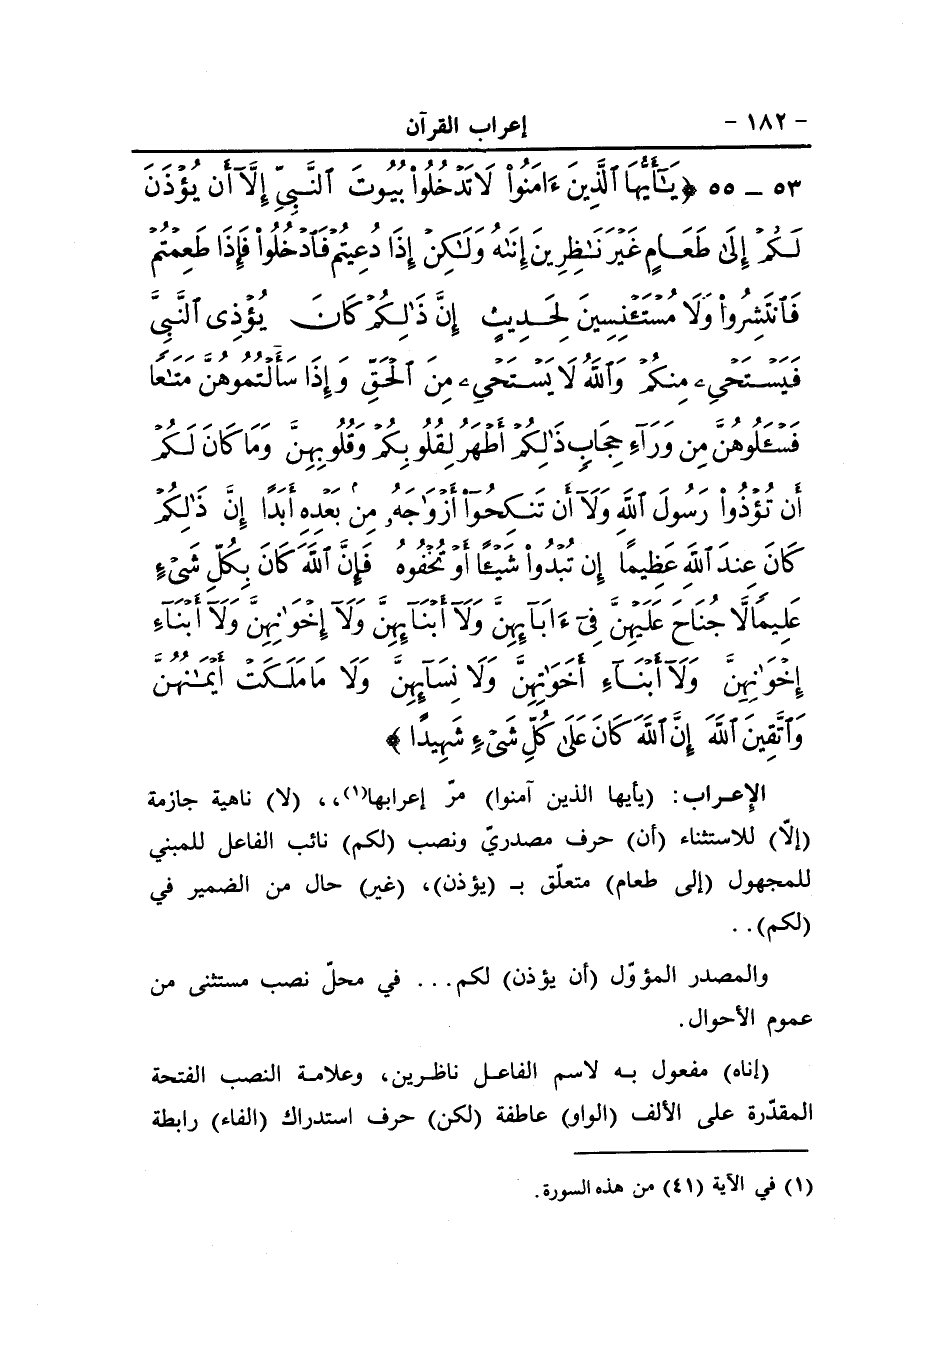 - ١٨٢ - إعراب القرآن
٥٣ - ٥٥ ﴿ يَٰٓأَيُّهَا ٱلَّذِينَ ءَامَنُوا۟ لَا تَدْخُلُوا۟ بُيُوتَ ٱلنَّبِىِّ إِلَّآ أَن يُؤْذَنَ
لَكُمْ إِلَىٰ طَعَامٍ غَيْرَ نَٰظِرِينَ إِنَىٰهُ وَلَٰكِنْ إِذَا دُعِيتُمْ فَٱدْخُلُوا۟ فَإِذَا طَعِمْتُمْ
فَٱنتَشِرُوا۟ وَلَا مُسْتَـْٔنِسِينَ لِحَدِيثٍ إِنَّ ذَٰلِكُمْ كَانَ يُؤْذِى ٱلنَّبِىَّ
فَيَسْتَحْىِۦ مِنكُمْ وَٱللَّهُ لَا يَسْتَحْىِۦ مِنَ ٱلْحَقِّ وَإِذَا سَأَلْتُمُوهُنَّ مَتَٰعًا
فَسْـَٔلُوهُنَّ مِن وَرَآءِ حِجَابٍ ذَٰلِكُمْ أَطْهَرُ لِقُلُوبِكُمْ وَقُلُوبِهِنَّ وَمَا كَانَ لَكُمْ
أَن تُؤْذُوا۟ رَسُولَ ٱللَّهِ وَلَآ أَن تَنكِحُوٓا۟ أَزْوَٰجَهُۥ مِنۢ بَعْدِهِۦٓ أَبَدًا إِنَّ ذَٰلِكُمْ
كَانَ عِندَ ٱللَّهِ عَظِيمًا إِن تُبْدُوا۟ شَيْـًٔا أَوْ تُخْفُوهُ فَإِنَّ ٱللَّهَ كَانَ بِكُلِّ شَىْءٍ
عَلِيمًا لَّا جُنَاحَ عَلَيْهِنَّ فِىٓ ءَابَآئِهِنَّ وَلَآ أَبْنَآئِهِنَّ وَلَآ إِخْوَٰنِهِنَّ وَلَآ أَبْنَآءِ
إِخْوَٰنِهِنَّ وَلَآ أَبْنَآءِ أَخَوَٰتِهِنَّ وَلَا نِسَآئِهِنَّ وَلَا مَا مَلَكَتْ أَيْمَٰنُهُنَّ
وَٱتَّقِينَ ٱللَّهَ إِنَّ ٱللَّهَ كَانَ عَلَىٰ كُلِّ شَىْءٍ شَهِيدًا ﴾
الإعراب: (يأيها الذين آمنوا) مرّ إعرابها(١)،، (لا) ناهية جازمة
(إلّا) للاستثناء (أن) حرف مصدريّ ونصب (لكم) نائب الفاعل للمبني
للمجهول (إلى طعام) متعلّق بـ (يؤذن)، (غير) حال من الضمير في
(لكم)..
والمصدر المؤوّل (أن يؤذن) لكم... في محلّ نصب مستثنى من
عموم الأحوال.
(إناه) مفعول به لاسم الفاعل ناظرين، وعلامة النصب الفتحة
المقدّرة على الألف (الواو) عاطفة (لكن) حرف استدراك (الفاء) رابطة
(١) في الآية (٤١) من هذه السورة.